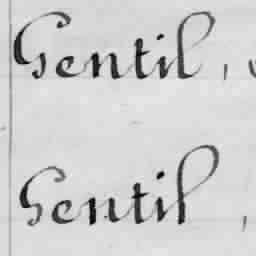 Gentil,
Gentil,